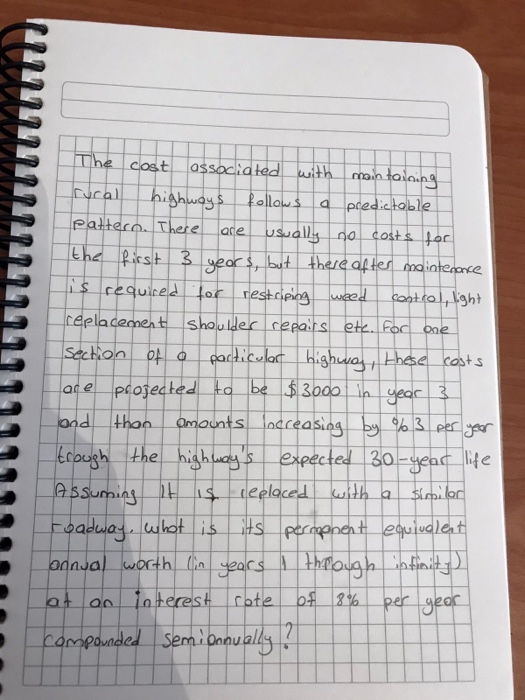 The cost associated with maintaining
rural highways follows a predictable
pattern. There are usually no costs for
the first 3 years, but thereafter maintenance
is required for restriping weed control, light
replacement shoulder repairs etc. For one
section of a particular highway, these costs
are projected to be $3000 in year 3
and than amounts increasing by %3 per year
trough the highway's expected 30-year life
Assuming It is replaced with a similar
roadway. what is its permanent equivalent
annual worth (in years 1 through infinity)
at an interest rate of 8% per year
compounded semiannually?